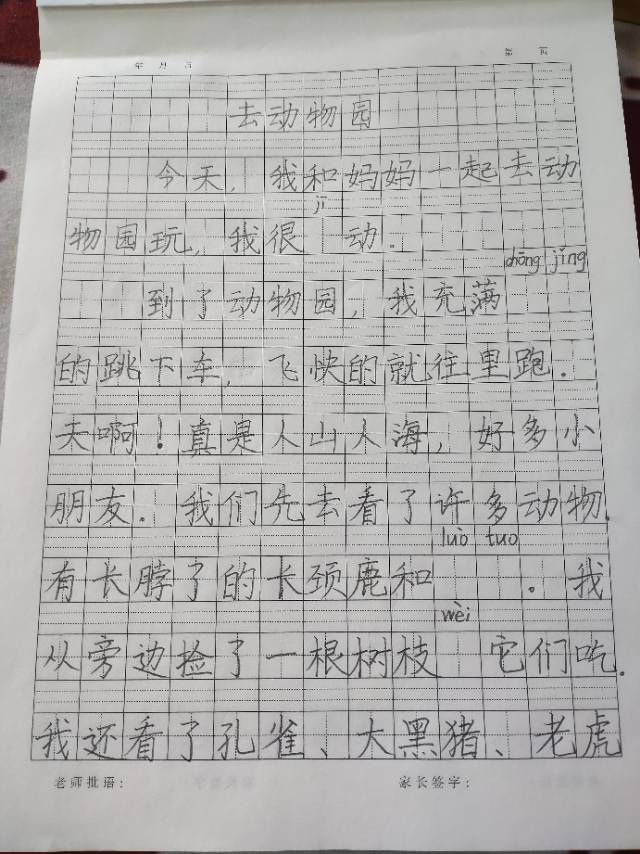 年 月 日 第 页
去动物园
今天，我和妈妈一起去动
jī
物园玩，我很 动.
chōng jǐng
到了动物园，我充满
的跳下车，飞快的就往里跑.
天啊！真是人山人海，好多小
朋友.我们先去看了许多动物.
luò tuo
有长脖子的长颈鹿和 .我
wèi
从旁边捡了一根树枝 它们吃.
我还看了孔雀、大黑猪、老虎
老师批语： 家长签字：